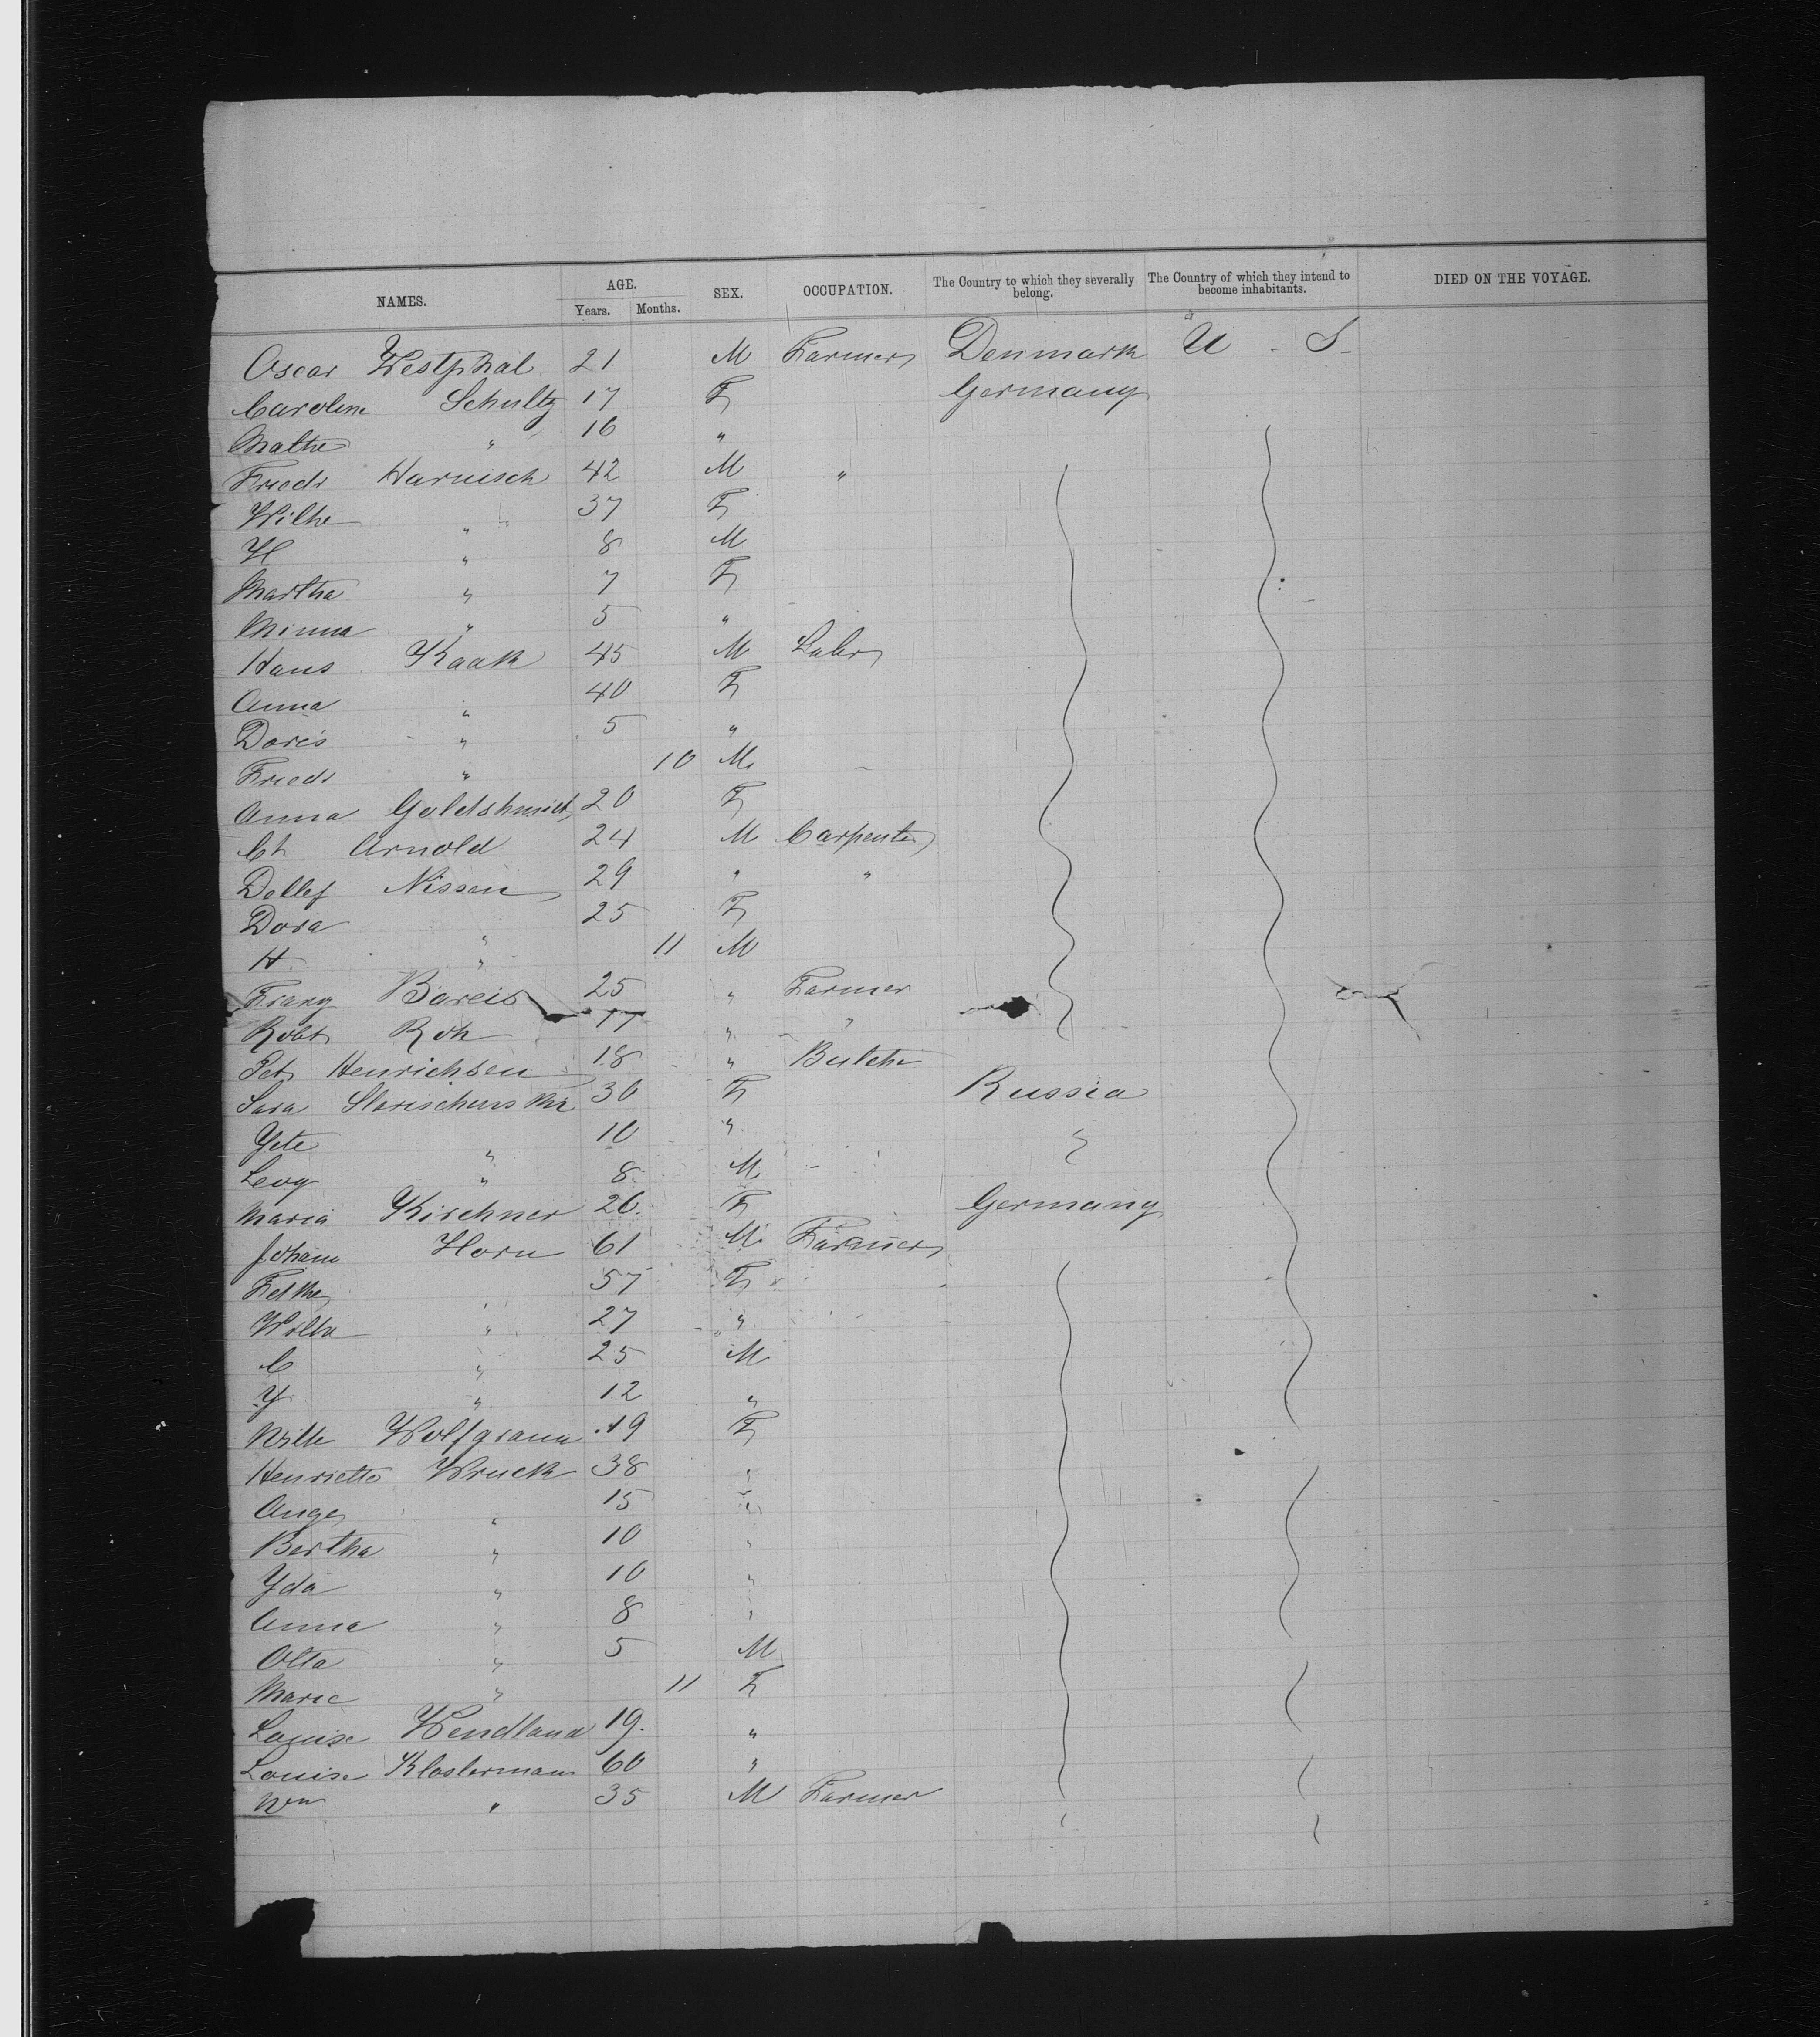 NAMES. AGE. Years. Months. SEX. OCCUPATION. The Country to which they severally belong. The Country of which they intend to become inhabitants. DIED ON THE VOYAGE.
Oscar Westphal 21 M Farmer Denmark U. S.
Caroline Schultz 17 F Germany
Mathe " 16 "
Friedr Harnisch 42 M "
Wilhe " 37 F
H " 8 M
Martha " 7 F
Minna " 5 "
Hans Kaak 45 M Labr
Anna " 40 F
Dores " 5 "
Friedr " 10 M
Anna Goldshmidt 20 F
Ch Arnold 24 M Carpenter
Detlef Nissen 29 " "
Dora " 25 F
H " 11 M
Franz Bareis 25 " Farmer
Robt Roh 17 " "
Pet Henrichsen 18 " Butche
Sara 30 F Russia
Yete " 10 " "
Levy " 8 M
Maria Kirchner 26 F Germany
Johann Horn 61 M Farmer
" 57 F
Wilha " 27 "
C " 25 M
Y " 12 "
Wilh Wolfgramm 19 F
Henriette Wruck 38 "
Auge " 15 "
Bertha " 10 "
Yda " 10 "
Anna " 8 "
Otta " 5 M
Marie " 11 F
Louise Wendland 19 "
Louise Klosterman 60 "
Wm " 35 M Farmer